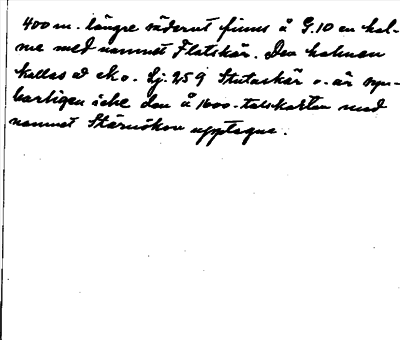 400 m. längre söderut finns å G. 10 en hol-
me med namnet Flatskär. Den holmen
kallas å ek o. lj. 259 Stutaskär o. är syn-
barligen icke den å 1600-talskartan med
namnet upptagna.